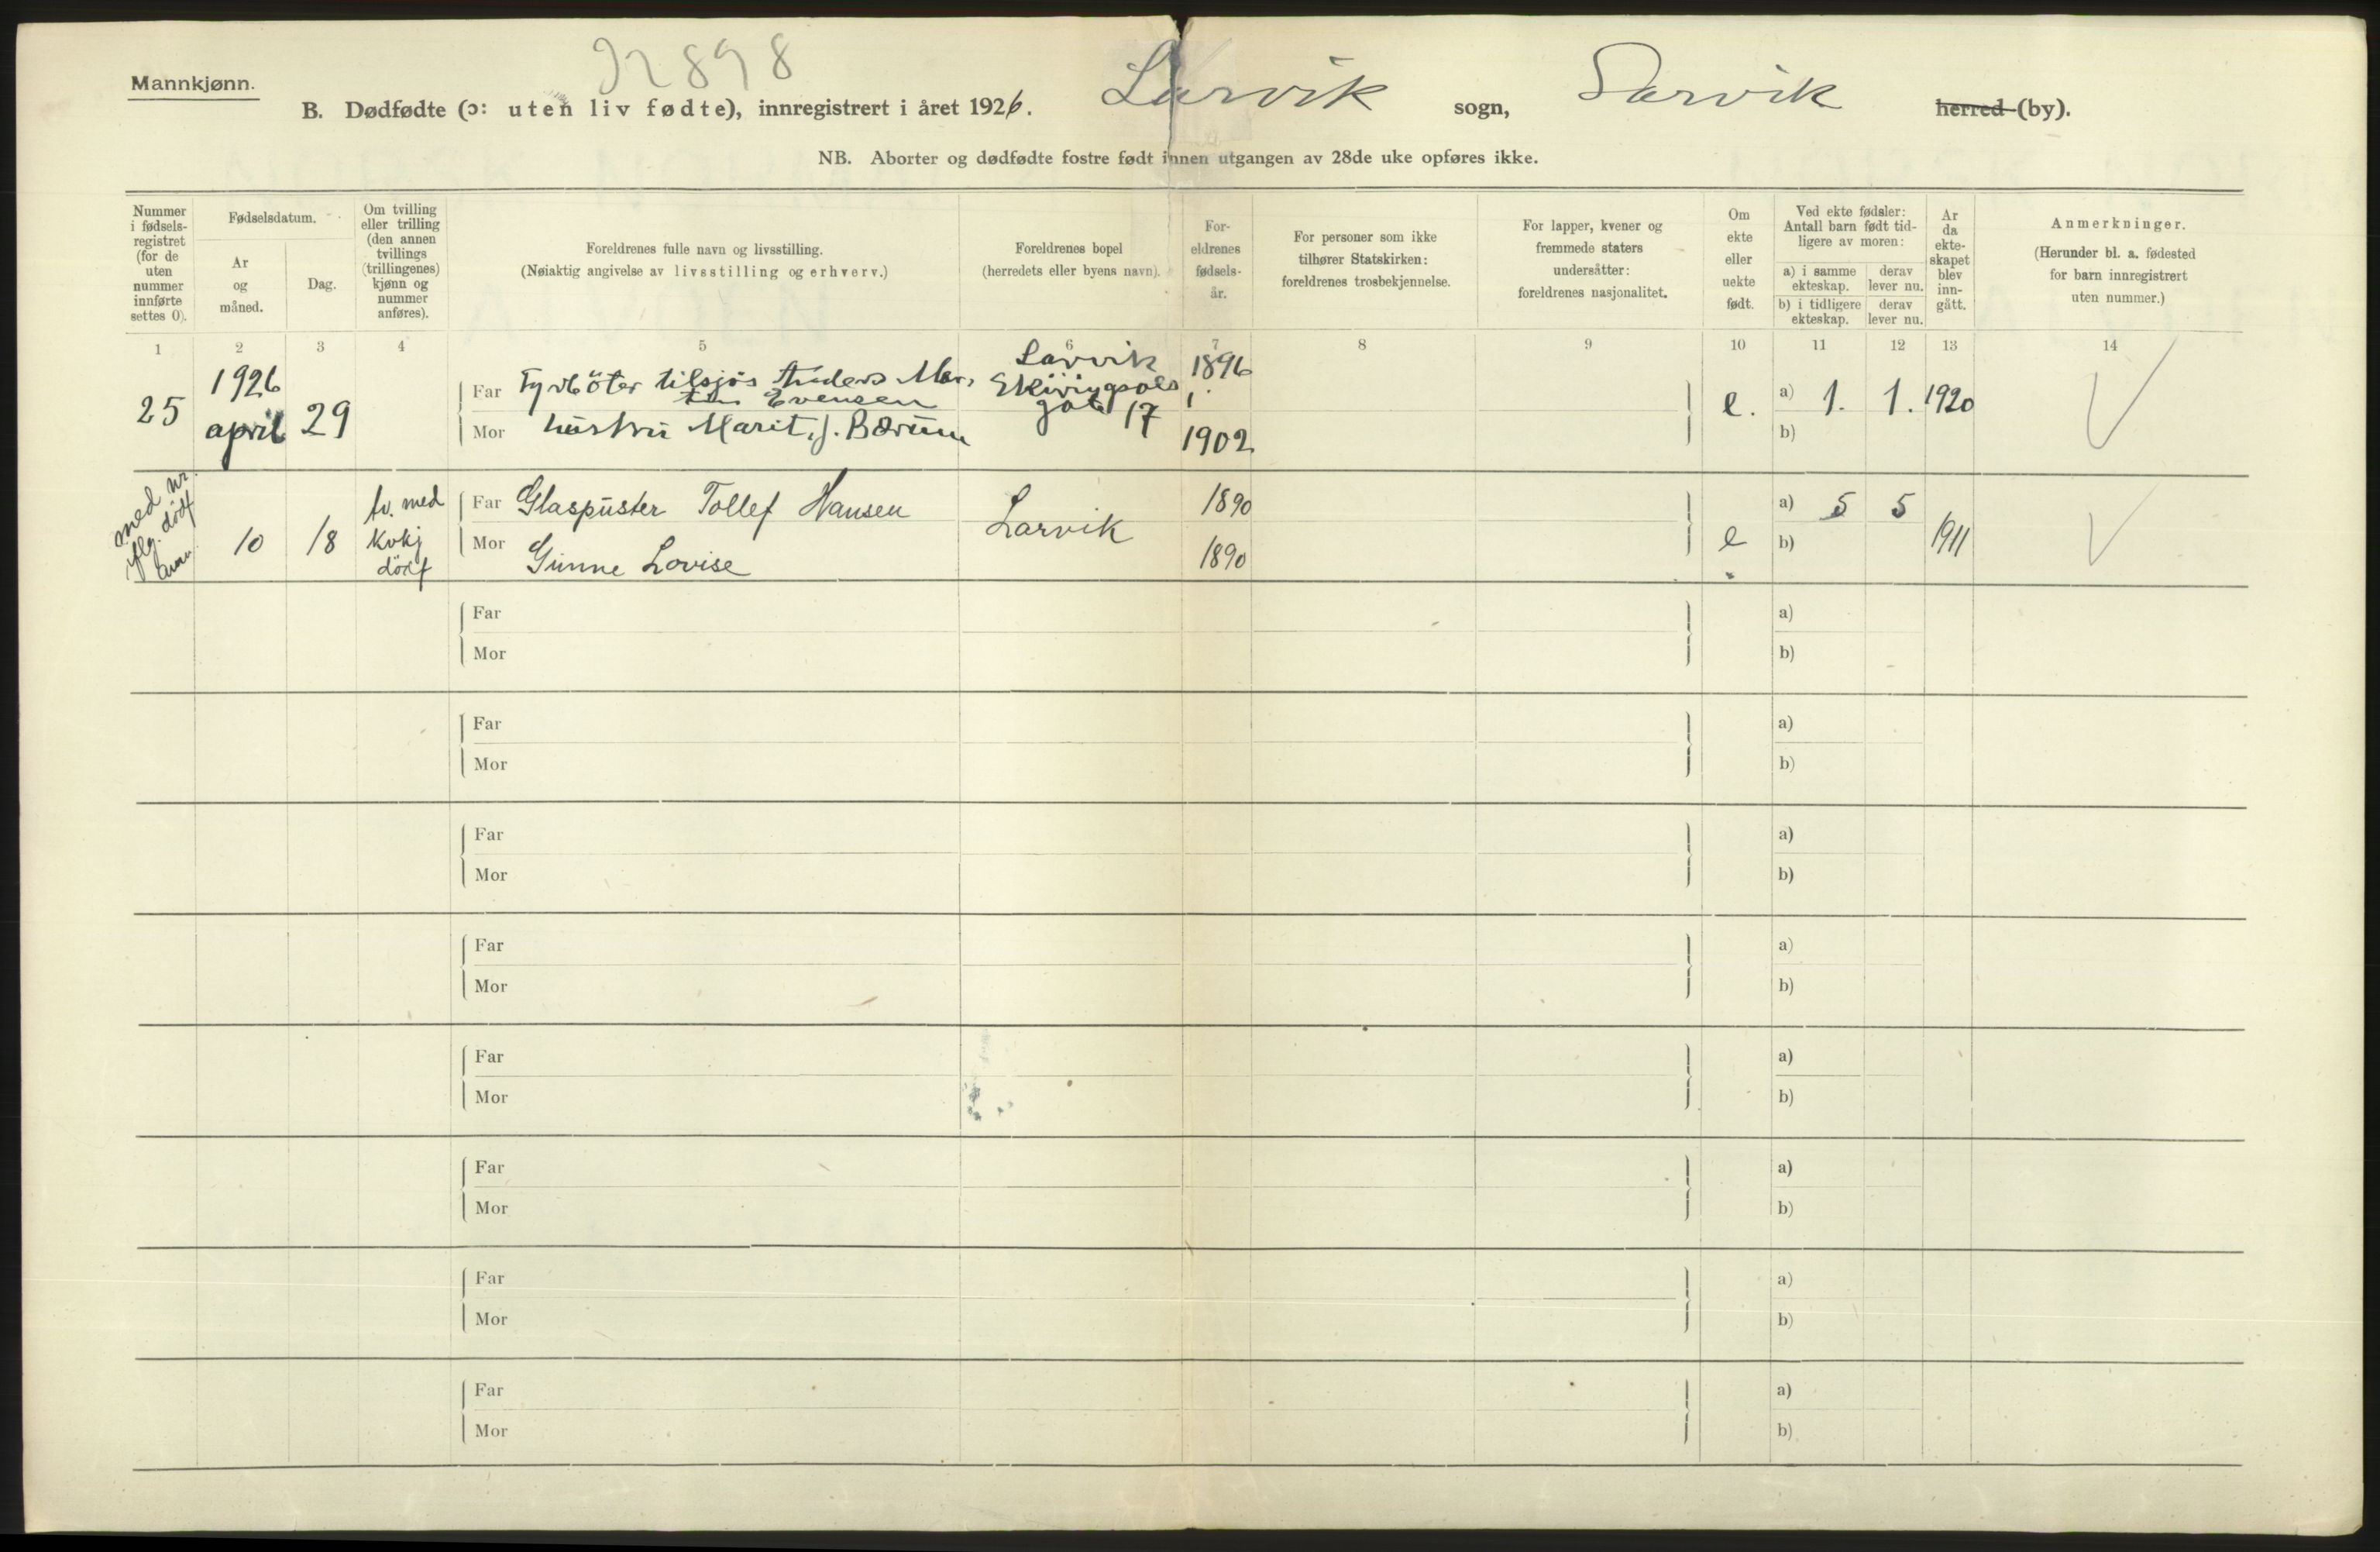 Mannkjønn.
B. Dødfødte (ɔ: uten liv fødte), innregistrert i året 1926. Larvik sogn, Larvik herred (by).
NB. Aborter og dødfødte fostre født innen utgangen av 28de uke opføres ikke.
Nummer i fødsels-registret (for de uten nummer innførte settes 0).
Fødselsdatum.
Ar og måned.
Dag.
Om tvilling eller trilling (den annen tvillings (trillingenes) kjønn og nummer anføres).
Foreldrenes fulle navn og livsstilling.
(Nøiaktig angivelse av livsstilling og erhverv.)
Foreldrenes bopel
(herredets eller byens navn).
For-eldrenes fødsels-år.
For personer som ikke tilhører Statskirken: foreldrenes trosbekjennelse.
For lapper, kvener og fremmede staters undersåtter: foreldrenes nasjonalitet.
Om ekte eller uekte født.
Ved ekte fødsler: Antall barn født tid-ligere av moren:
a) i samme ekteskap. derav lever nu.
b) i tidligere ekteskap. derav lever nu.
Ar da ekte-skapet blev inn-gått.
Anmerkninger.
(Herunder bl. a. fødested for barn innregistrert uten nummer.)
1 2 3 4 5 6 7 8 9 10 11 12 13 14
25 1926 april 29
Far Fyrböter tilsjøs Anders Mar-
Evensen
Mor hustru Marit, f. Bærum
Larvik
gate 17
1896
1902
e. a) 1. 1. 1920
b)
med nr.
dødf
10 18 tv. med
kvkj
dödf
Far Glaspuster Tollef Hansen
Mor Gunne Lovise
Larvik
1890
1890
e a) 5 5 1911
b)
Far a)
Mor b)
Far a)
Mor b)
Far a)
Mor b)
Far a)
Mor b)
Far a)
Mor b)
Far a)
Mor b)
Far a)
Mor b)
Far a)
Mor b)